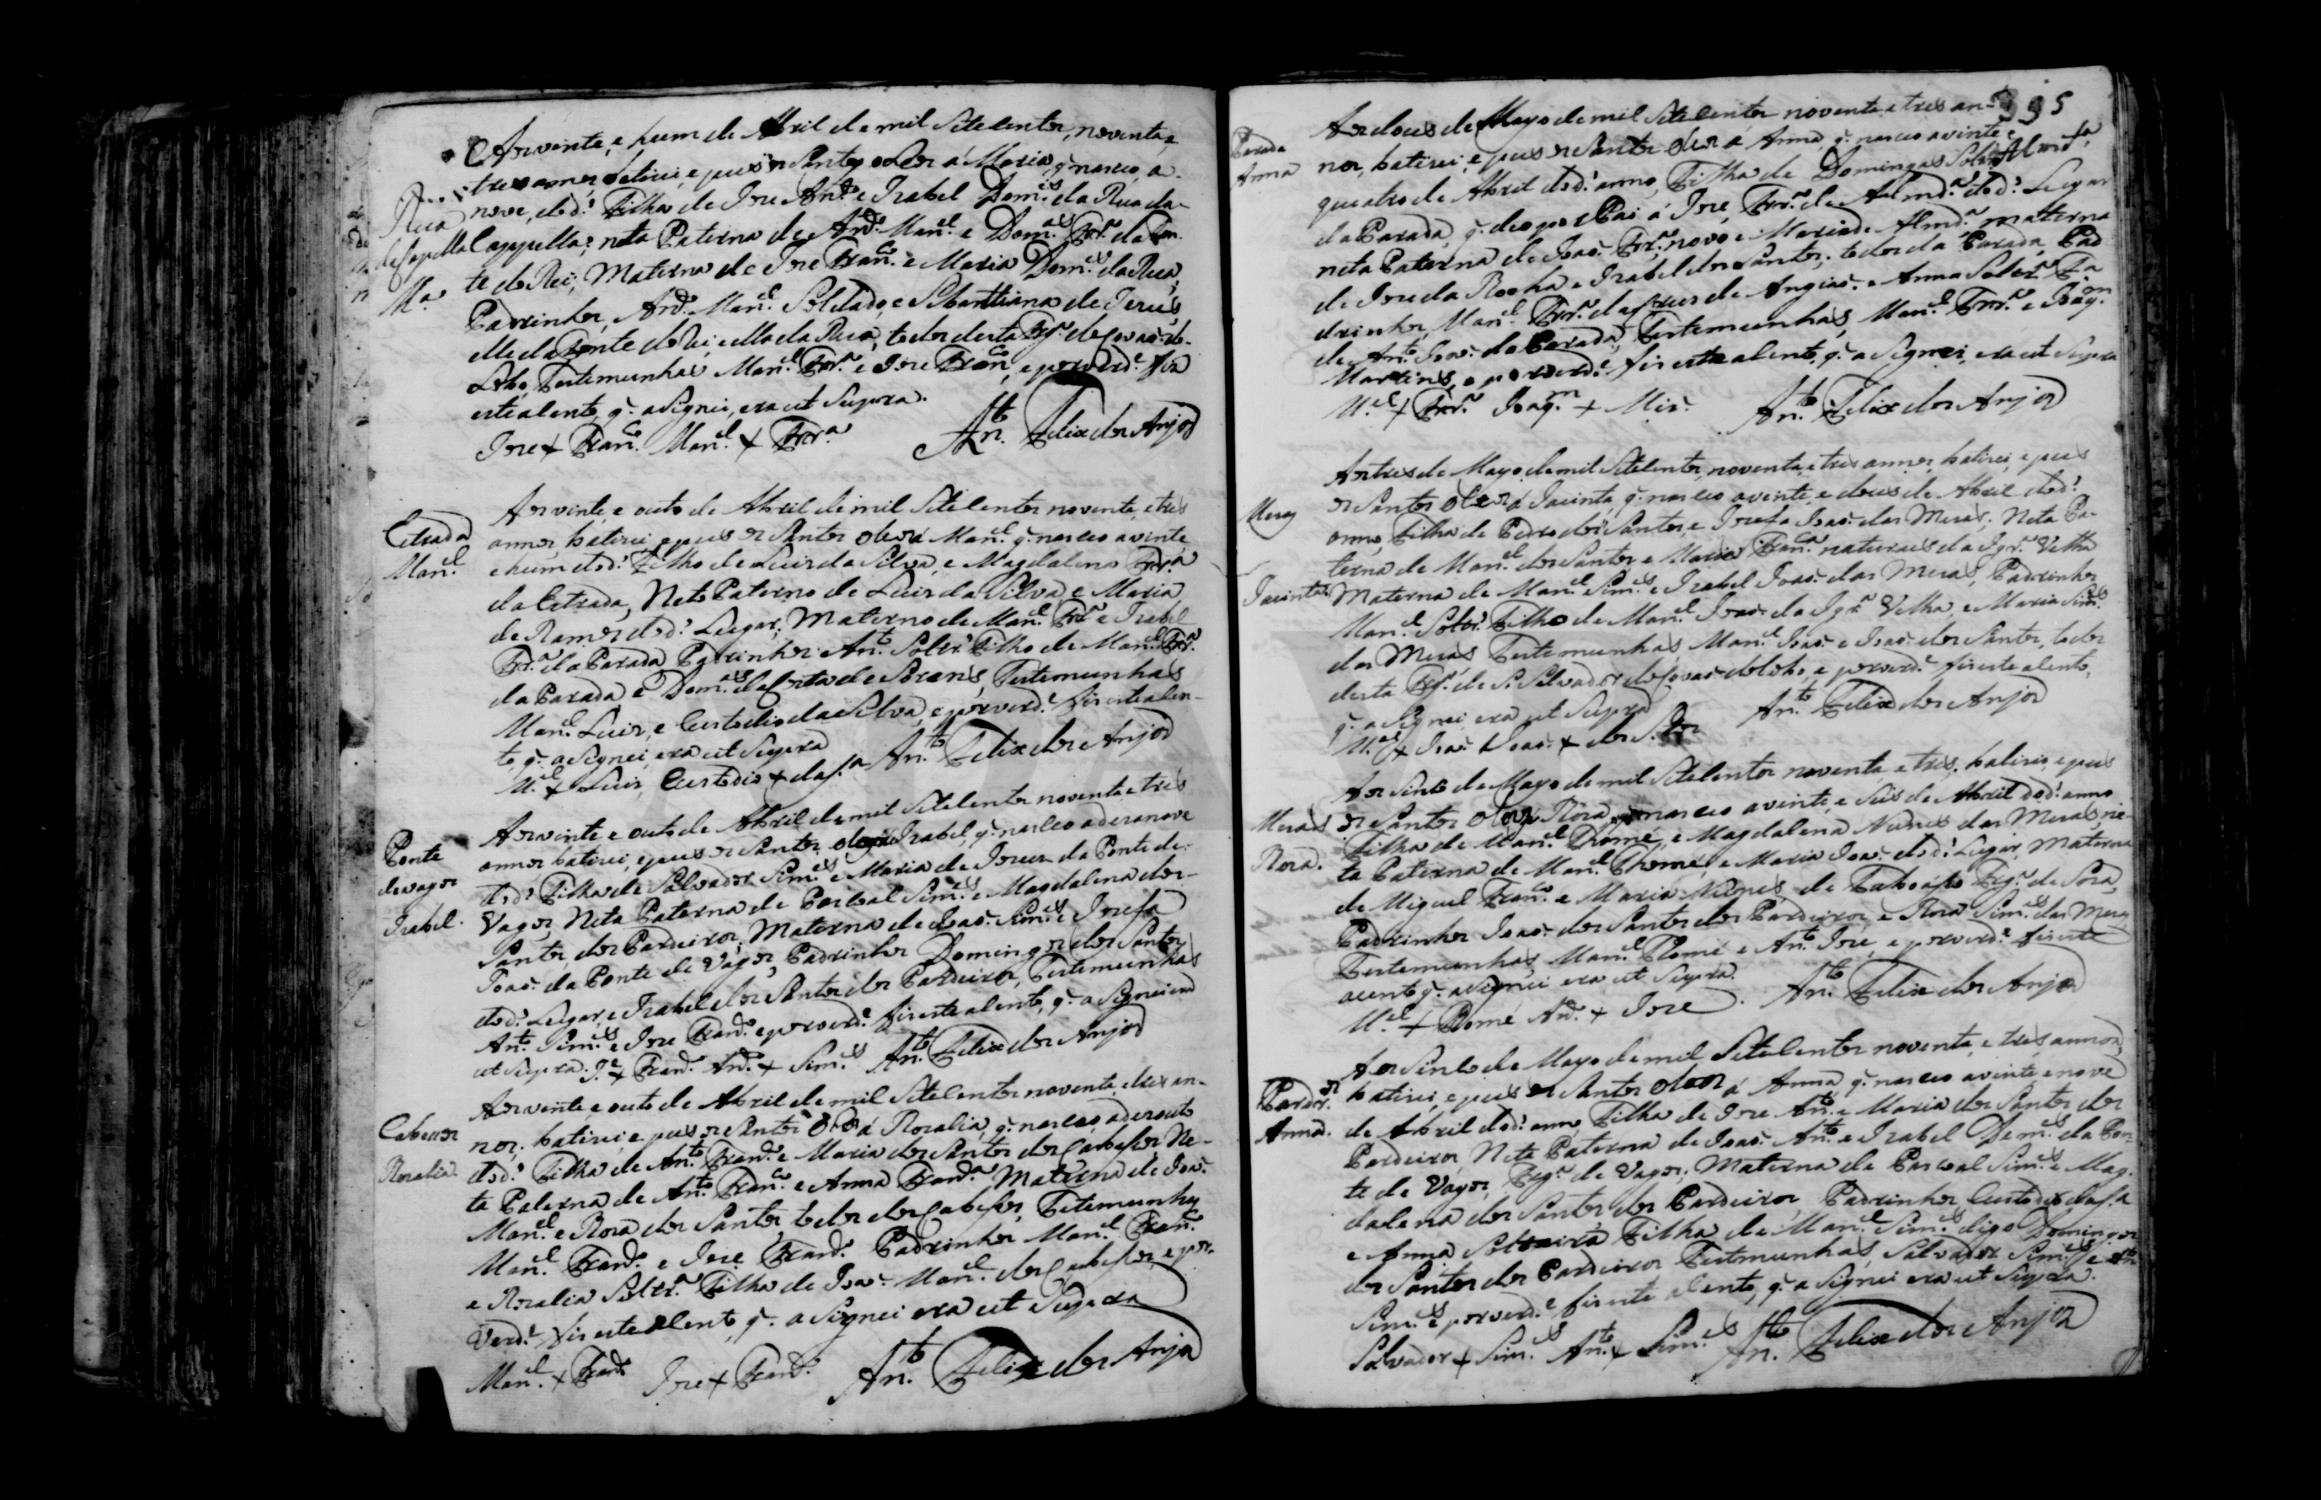 Aos vinte, e hum de Abril de mil Setecentos, noventa e
tres annos, batizei, e pus os Santos oLeos á Maria, q̃. nasceo, a-
Rua
de Capella
Mª
nove, do dº. Filha de Jose Andᵉ e Izabel Domᵉˢ da Rua da-
Cappella; neta Paterna de Andᵉ. Manᵉˡ. e Domᵃˢ Frrª. da Pon-
te do Rei; Materna de Jose Franᶜᵒ. e Maria Domᵉˢ da Rua;
Padrinhos, Andᵉ. Manᵉˡ. Soldado, e Sebastiana de Jesus,
elle da Ponte do Rei, e ella da Rua, todos desta Frgª. de Covaõ do-
Lobo, Testemunhas Manᵉˡ. Frrª. e Jose Franᶜᵒ, e por verdᵉ. fiz
este aSento, q̃. aSignei, era ut Supra.
Jose + Franᶜᵒ. Manᵉˡ + Frrª
Anᵗᵒ. Felix dos Anjos
Estrada
Manᵉˡ
Aos vinte, e outo de Abril de mil Setecentos noventa, e tres
annos, batizei, e pus os Santos oLeos á Manᵉˡ. q̃. nasceo a vinte
e hum do dº. Filho de Luis da Silva, e Magdalena Frrª
da Estrada, Neto Paterno de Luis da Silva, e Maria
de Ramos do dº. Lugar; Materno de Manᵉˡ. Frrª e Izabel
Frrª. da Parada Padrinhos Anᵗᵒ. Soltrº. Filho de Manᵉˡ. Frrª.
da Parada e Domᵃˢ da Costa de Sozans, Testemunhas
Manᵉˡ. Luis, e Custodio da Silva, e por verdᵉ. fiz este aSen-
to, q̃. aSignei, era ut Supra
Mᵉˡ. + Luis, Custodio + da Sª. Anᵗᵒ. Felix dos Anjos
Ponte
de Vagos
Izabel.
Aos vinte e outo de Abril de mil Setecentos noventa e tres
annos, batizei, e pus os Santos oleos á Izabel, q̃. nasceo a desanove
do dº. Filha de Salvador Simᵉˢ e Maria de Jesus da Ponte de-
Vagos, Neta Paterna de Pascoal Simᵉˢ. e Magdalena dos-
Santos dos Pardeiros; Materna de Joaõ. Simᵉˢ e Josefa
Joaõ. da Ponte de Vagos, Padrinhos Domingos dos Santos
do dº. Lugar, e Izabel dos Santos dos Pardeiros, Testemunhas
Anᵗᵒ. Simᵉˢ e Jose Frandᵉ. e por verdᵉ. fiz este aSento, q̃. aSignei era
ut Supra. Jᵉ + Frandᵉ. Anᵗᵒ. + Simᵉˢ Anᵗᵒ. Felix dos Anjos
Cabessos
Rosalia.
Aos vinte, e outo de Abril de mil Setecentos noventa, e tres an-
nos, batizei, e pus os Santos Oleos á Rosalia, q̃. nasceo, a desouto
do dº. Filha de Anᵗᵒ. Frandᵉ. e Maria dos Santos dos Cabessos Ne-
ta Paterna de Anᵗᵒ. Franᶜᵒ. e Anna Frandᵃ. Materna de Joaõ.
Manᵉˡ. e Rosa dos Santos, todos dos Cabessos, Testemunhas
Manᵉˡ. Frandᵉ. e Jose Frandᵉ. Padrinhos Manᵉˡ. Frandᵉ.
e Rosalia Soltrª. Filha de Joaõ. Manᵉˡ. dos Cabessos, e por-
Verdᵉ. fiz este aSento, q̃. aSignei era ut Supra
Manᵉˡ. + Frandᵉ Jose + Frandᵉ. Anᵗᵒ. Felix dos Anjos
395
Parada
Anna
Aos dous de Mayo de mil Setecentos noventa, e tres an-
nos, batizei, e pus os Santos oleos á Anna q̃. nasceo a vinte e
quatro de Abril do dº. anno, Filha de Domingas Soltrª
da Parada, q̃. deo por Pai á Jose Frrª. de Almdª. do dº. Lugar
neta Paterna de Joaõ. Frrª. novo e Maria de Almdª. materna
de Jose da Rocha e Izabel dos Santos; todos da Parada, Pad
drinhos, Manᵉˡ. Frrª. da Cruz de Angiaõ. e Anna Soltrª Fª
de Anᵗᵒ. Joaõ. da Parada, Testemunhas, Manᵉˡ. Frrª. e Joaqᵐ.
Martins, e por verdᵉ. fiz este aSento, q̃. aSignei, era ut Supra
Mᵉˡ + Frrª. Joaqᵐ + Miz̃. Anᵗᵒ. Felix dos Anjos
Mesas
Jacinta
Aos tres de Mayo de mil Setecentos, noventa, e tres annos, batizei, e pus
os Santos Oleos á Jacinta, q̃. nasceo a vinte, e dous de Abril do dº.
anno, Filha de Pedro dos Santos, e Josefa Joaõ. das Mesas. Neta Pa-
terna de Manᵉˡ. dos Santos e Maria Franᶜᵃ. naturaes da Igrª. Velha
Materna de Manᵉˡ. Simᵉˢ. e Izabel Joaõ. das Mesas, Padrinhos
Manᵉˡ. Soltrº. Filho de Manᵉˡ. Joaõ. da Igrª Velha e Maria Simᵉˢ.
das Mesas Testemunhas Manᵉˡ. Joaõ. e Joaõ. dos Santos, todos
desta Frgª. de S. Salvador de Covaõ do Lobo, e por verdᵉ. fiz este aSento,
q̃. aSignei era ut Supra
Mᵉˡ + Joaõ. Joaõ. + dos Stos Anᵗᵒ. Felix dos Anjos
Mesas
Rosa.
Aos Sinco de Mayo de mil Setecentos noventa, e tres, batizei, e pus
os Santos oleos á Rosa, q̃. nasceo a vinte, e Seis de Abril do dº. anno
Filha de Manᵉˡ. Thomé, e Magdalena Nunes das Mesas, ne-
ta Paterna de Manᵉˡ. Thomé, e Maria Joaõ. do dº. Lugar, Materna
de Miguel Franᶜᵒ. e Maria Nunes, de Frgª. de Soza,
Padrinhos Joaõ. dos Santos dos Pardeiros, e Rosa Simᵉˢ. das Mesas
Testemunhas, Manᵉˡ. Thomé e Anᵗᵒ. Jose, e por verdᵉ. fiz este
acento q̃. aSignei era ut Supra.
Mᵉˡ + Thomé Anᵗᵒ. + Jose. Anᵗᵒ. Felix dos Anjos
Pardrᵒˢ
Anna.
Aos Sinco de Mayo de mil Setecentos noventa, e tres, annos,
batizei, e pus os Santos oleos á Anna, q̃. nasceo a vinte e nove
de Abril do dº. anno, Filha de Jose Anᵗᵒ. e Maria dos Santos dos
Pardeiros, Neta Paterna de Joaõ. Anᵗᵒ. e Izabel Domᵉˢ. da Pon-
te de Vagos, Frgª. de Vagos. Materna de Pascoal Simᵉˢ. e Mag-
dalena dos Santos dos Pardeiros Padrinhos Custodio da Sª
e Anna Solteira Filha de Manᵉˡ. Simᵉˢ. digo Domingos
dos Santos dos Pardeiros Testemunhas, Salvador Simᵉˢ e Anᵗᵒ
Simᵉˢ e por verdᵉ fiz este aSento, q̃. aSignei era ut Supra.
Salvador + Simᵉˢ. Anᵗᵒ. + Simᵉˢ Anᵗᵒ. Felix dos Anjos